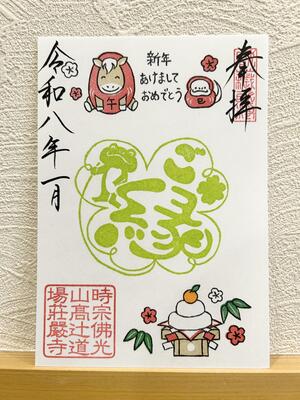 奉拝
新年
あけまして
おめでとう
午
巳
令和八年一月
ご縁
時宗佛光
山高辻道
場荘厳寺